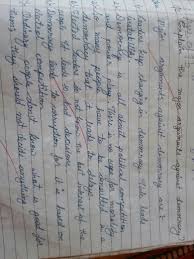 Q. Explain the major arguments against democracy?
Major arguments against democracy are :
1) Leaders keep changing in democracy. This leads to
instability.
2) Democracy is all about political competition
and power play. There is no scope for morality
3) So many people have to be consulted in
democracy that it leads to delays.
4) Elected leaders do not know the best interest of the
people. It leads to bad decisions.
5) Democracy leads to corruption for it is based on
electoral competition.
6) Ordinary people don't know what is good for
them; they should not decide anything